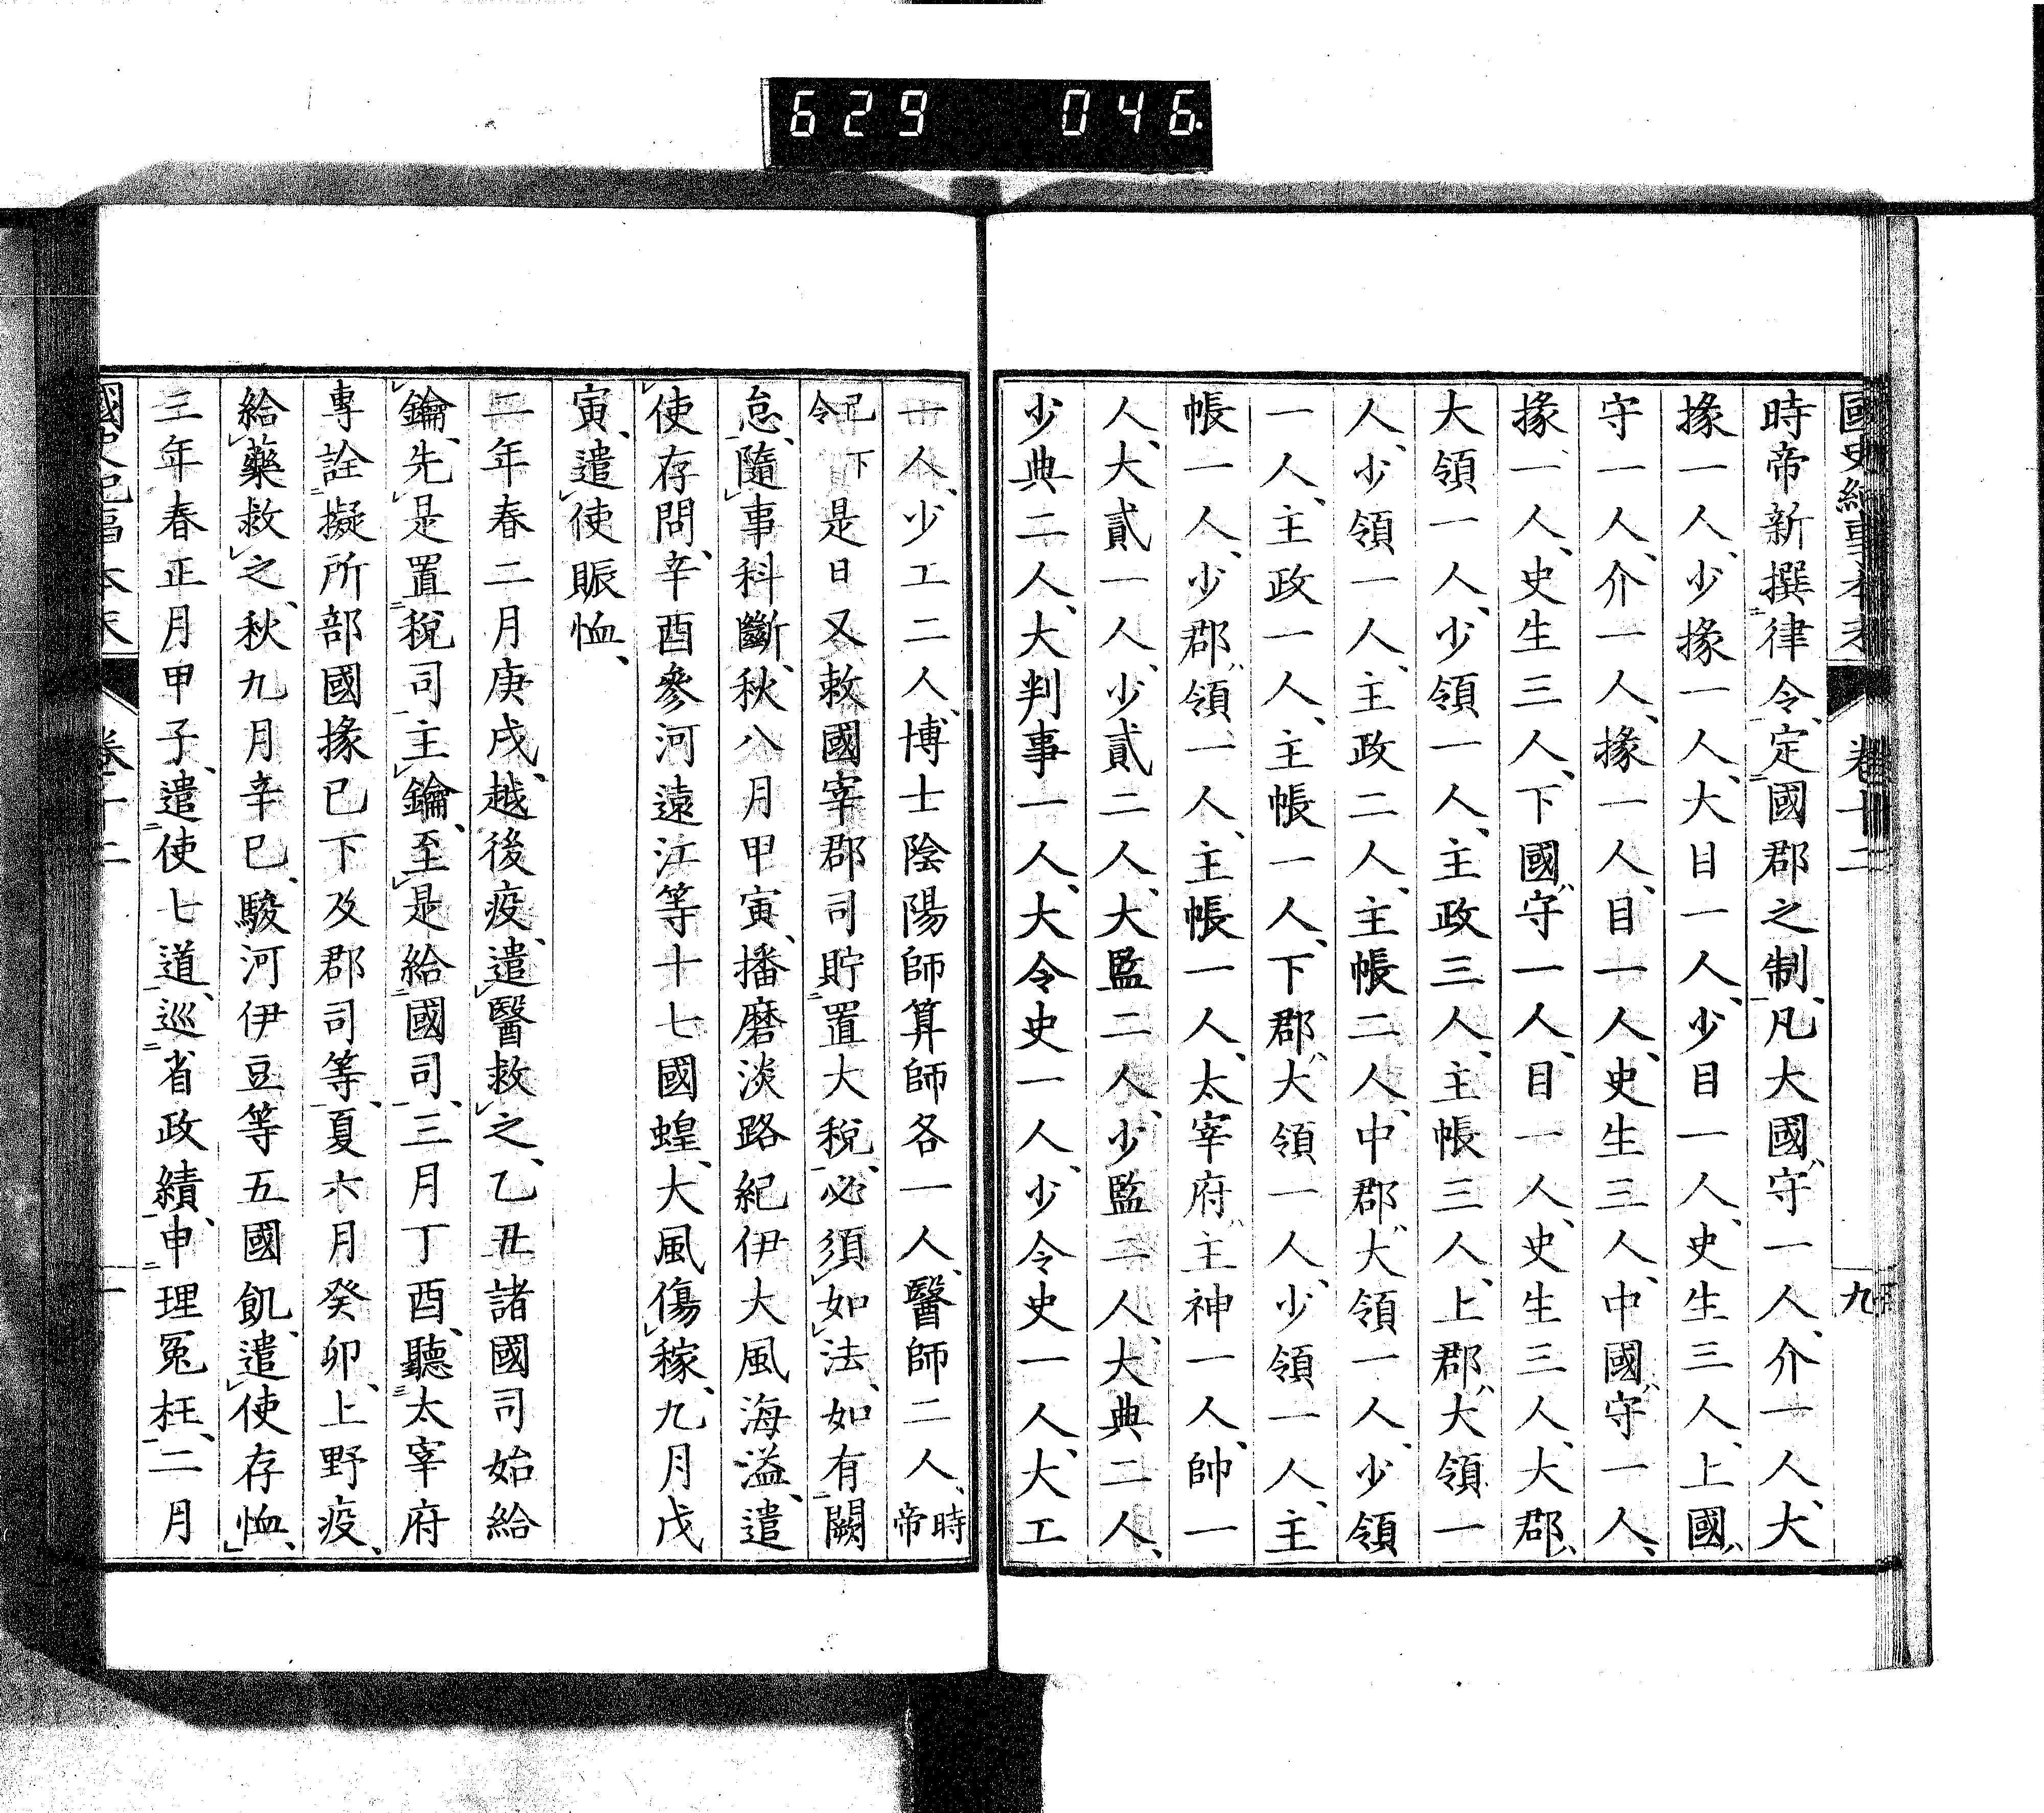 629 046
國史紀事本末 卷十二 九
時帝新撰律令、定國郡之制、凡大國、守一人、介一人、大
掾一人、少掾一人、大目一人、少目一人、史生三人、上國、
守一人、介一人、掾一人、目一人、史生三人、中國、守一人、
掾一人、史生三人、下國、守一人、目一人、史生三人、大郡、
大領一人、少領一人、主政三人、主帳三人、上郡、大領一
人、少領一人、主政二人、主帳二人、中郡、大領一人、少領
一人、主政一人、主帳一人、下郡、大領一人、少領一人、主
帳一人、少郡、領一人、主帳一人、太宰府、主神一人、帥一
人、大貳一人、少貳二人、大監二人、少監二人、大典二人、
少典二人、大判事一人、大令史一人、少令史一人、大工
一人、少工二人、博士陰陽師算師各一人、醫師二人、時帝
已下令是日又敕國宰郡司貯置大稅、必須如法、如有闕
怠、隨事科斷、秋八月甲寅、播磨淡路紀伊大風海溢、遣
使存問、辛酉參河遠江等十七國蝗、大風傷稼、九月戊
寅、遣使賑恤、
二年春二月庚戌、越後疫、遣醫救之、乙丑諸國司始給
鑰、先是置稅司主鑰、至是給國司、三月丁酉、聽太宰府
專詮擬所部國掾已下及郡司等、夏六月癸卯、上野疫、
給藥救之、秋九月辛巳、駿河伊豆等五國飢、遣使存恤、
三年春正月甲子、遣使七道、巡省政績、申理冤枉、二月
國史紀事本末 卷十二